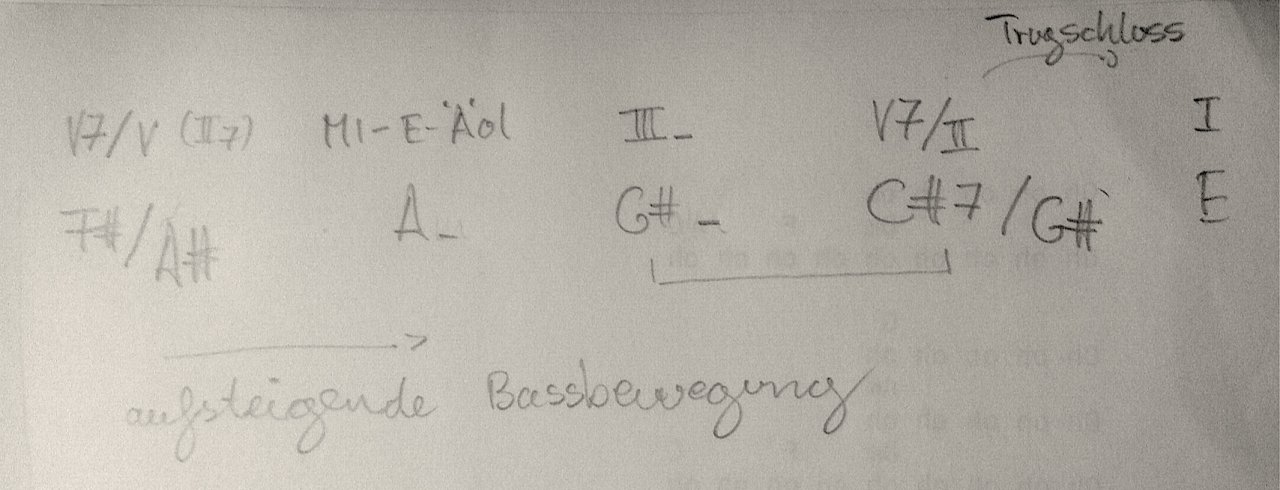 Trugschloss
V7/V (II7) MI-E-Äol III- V7/II I
F#/A# A- G#- C#7/G# E
aufsteigende Bassbewegung